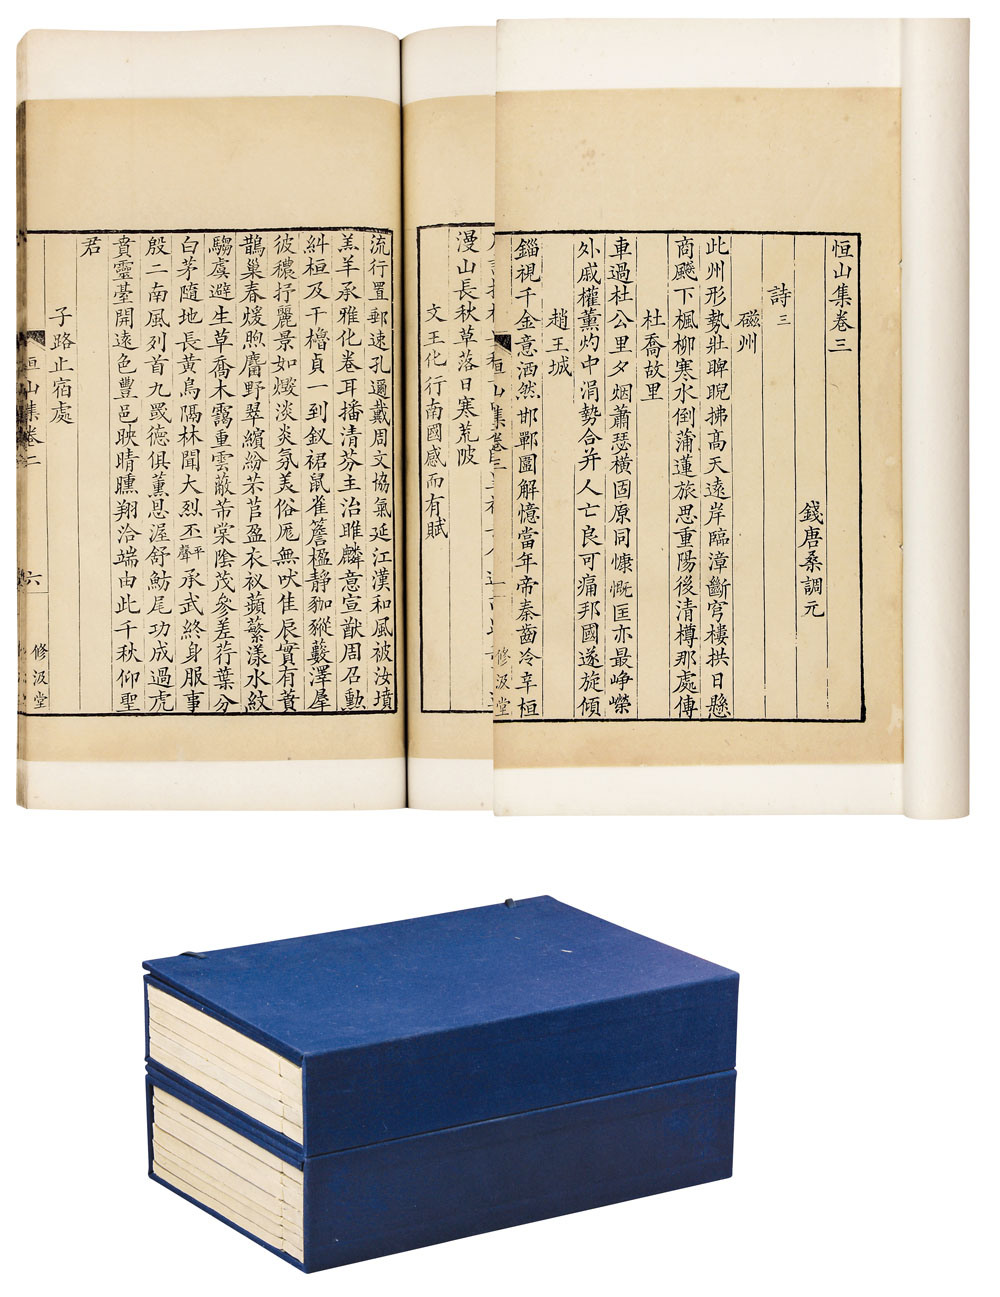 恒山集卷三
錢唐桑調元
詩三
磁州
此州形勢壯睥睨拂高天遠岸臨漳斷穹樓拱日懸
商飈下楓柳寒水倒蒲蓮旅思重陽後清樽那處傳
杜喬故里
車過杜公里夕烟蕭瑟橫固原同慷慨匡亦最崢嶸
外戚權薰灼中涓勢合并人亡良可痛邦國遂旋傾
趙王城
錙視千金意洒然邯鄲圍解憶當年帝秦齒冷辛桓
恒山集卷三
修汲堂
漫山長秋草落日寒荒陂
文王化行南國感而有賦
流行置郵速孔邇戴周文協氣延江漢和風被汝墳
羔羊承雅化卷耳播清芬主治雎麟意宣猷周召勳
糾桓及干櫓貞一到釵裙鼠雀簷楹靜豝豵藪澤犀
彼穠抒麗景如燬淡炎氛美俗厖無吠佳辰實有蕡
鵲巢春煖煦麕野翠繽紛芣苢盈衣衱蘋蘩漾水紋
騶虞避生草喬木靄重雲蔽芾棠陰茂參差荇葉分
白茅隨地長黃鳥隔林聞大烈丕平聲承武終身服事
殷二南風列首九罭德俱薰恩渥舒魴尾功成過虎
賁靈臺開遠色豐邑映晴曛翔洽端由此千秋仰聖
君
子路止宿處
恒山集卷二
六
修汲堂